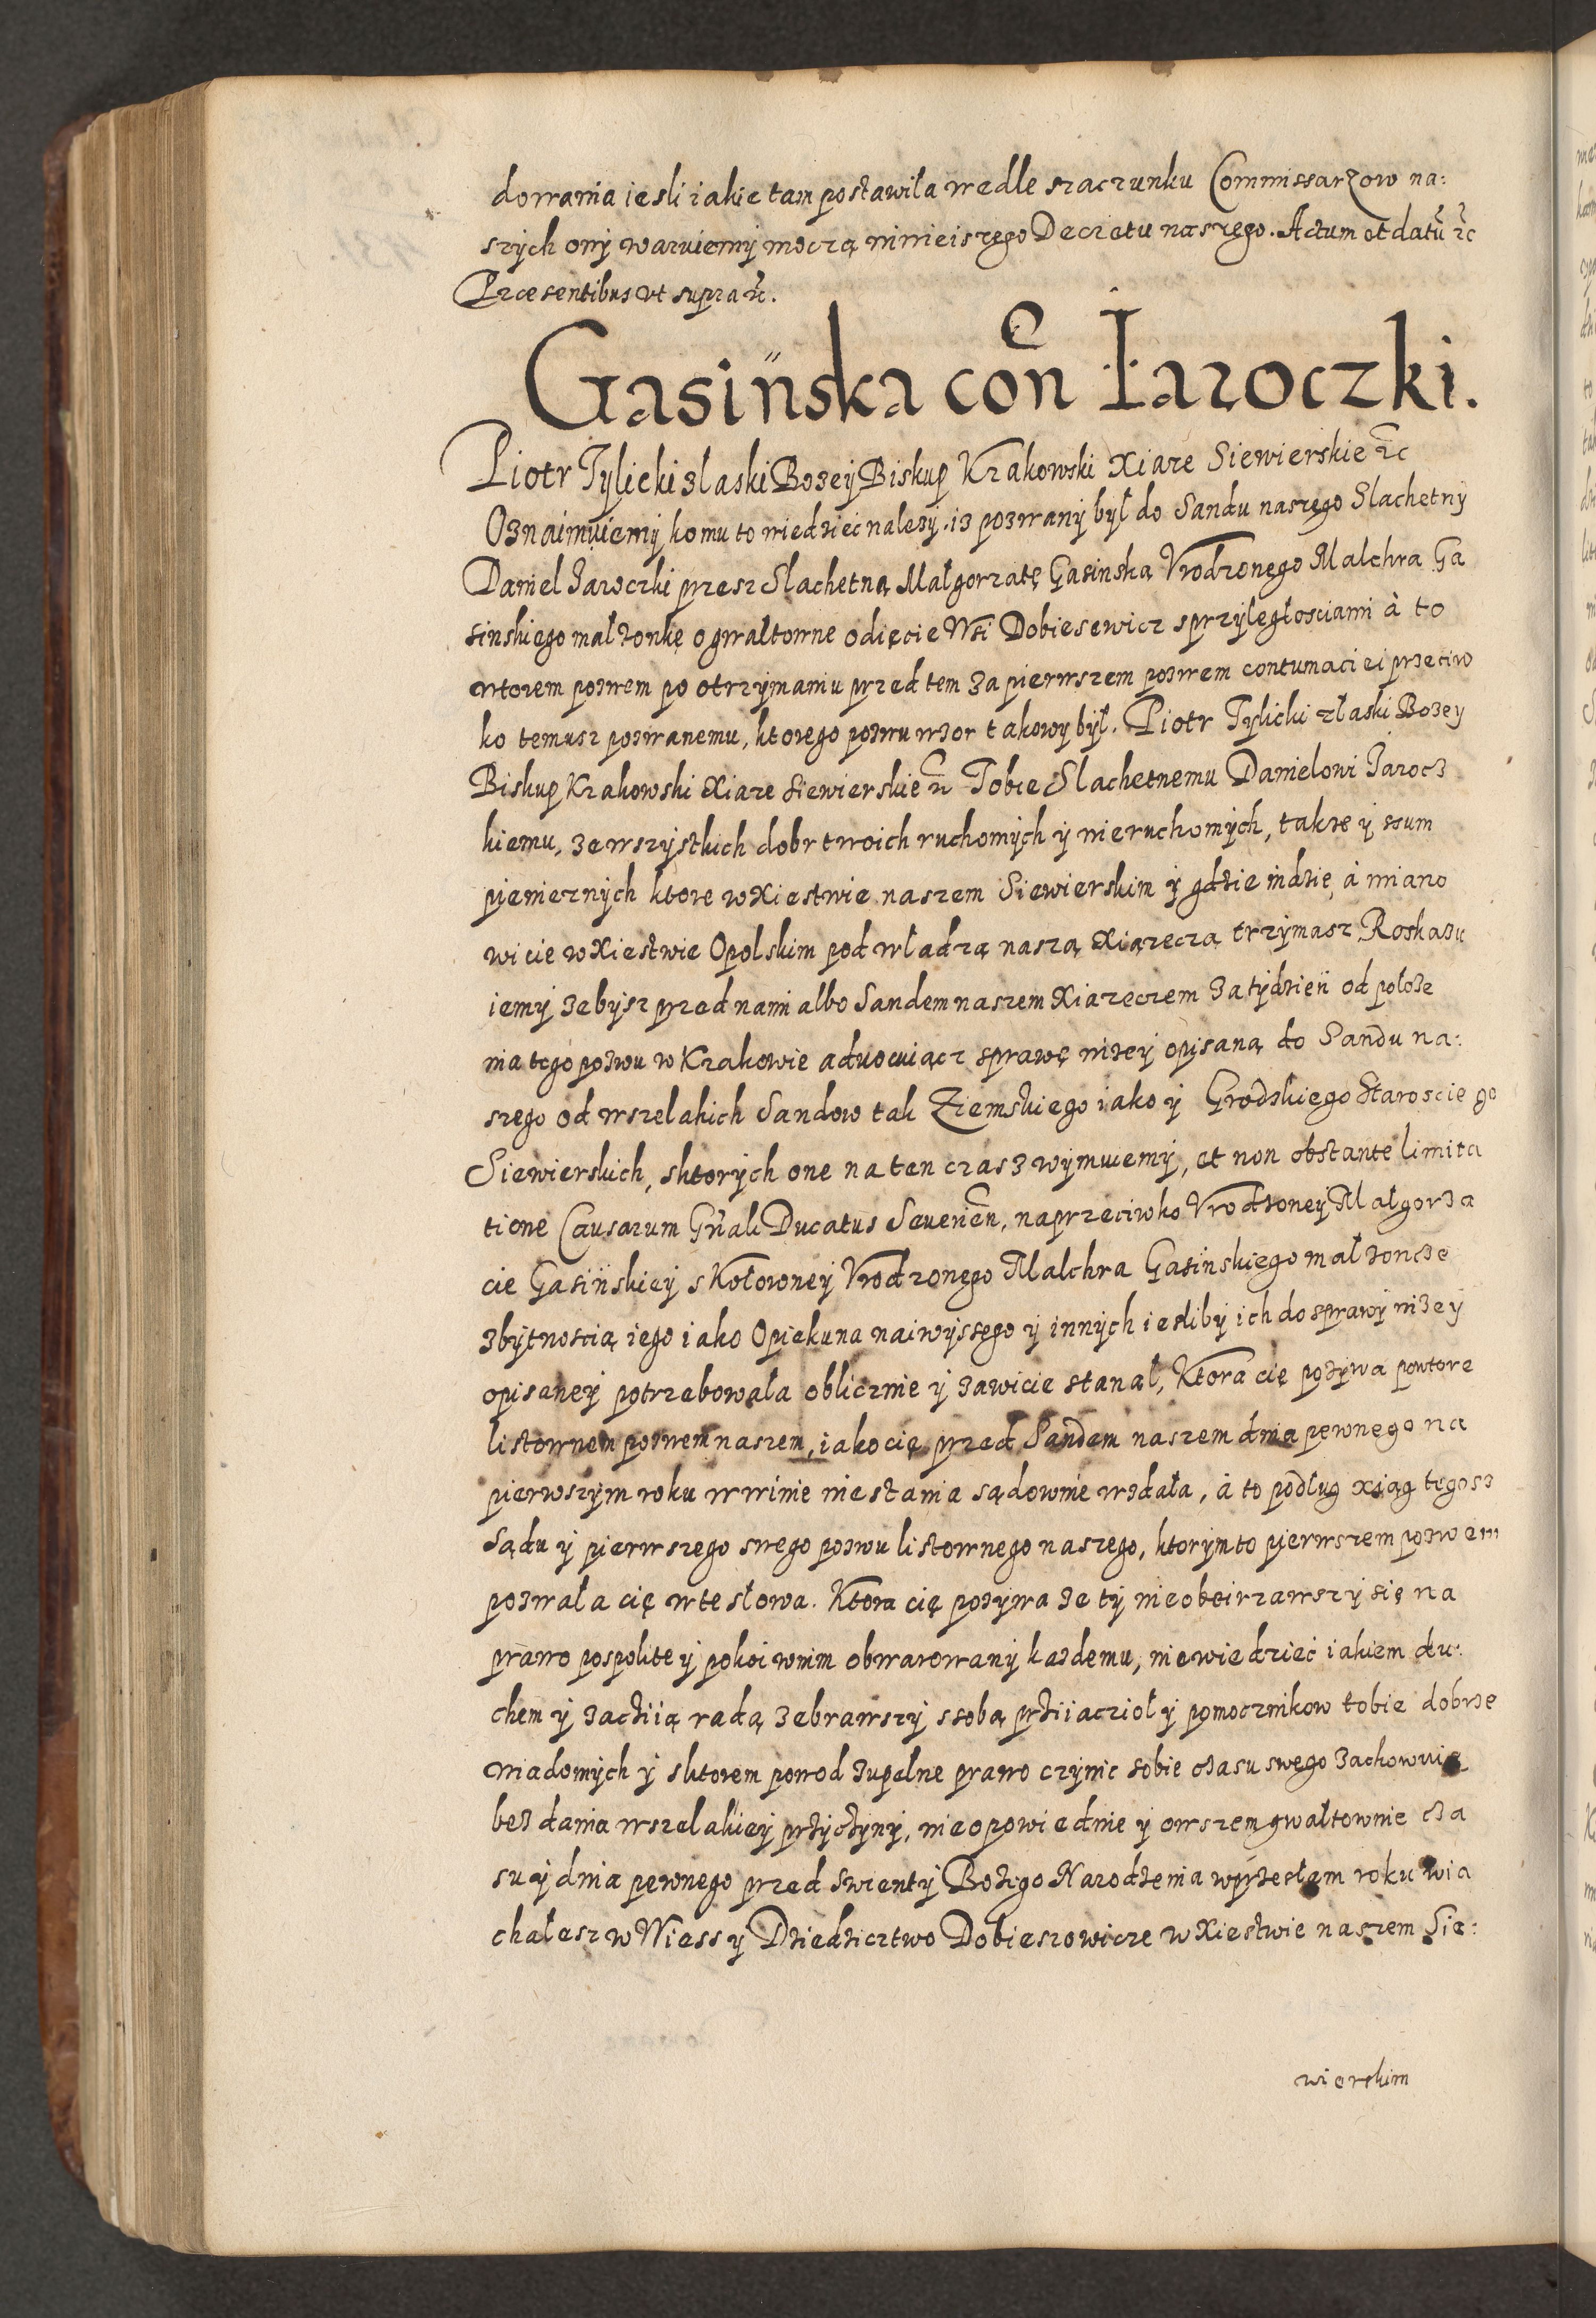 dowania iesli iakie tam postawiła wedle szaczunku Commissarzow na:
szÿch onÿ waruiemÿ moczą ninieiszego Decretu naszego. Actum et datũ ꝛc
Præsentibus vt supra ꝛc.
Gasińska coñ Iaroczki.
Piotr Tÿlicki zlaski BozeÿBiskup Krakowski Xiąze Siewierskie ꝛc
Oznaimuiemÿ komu to wiedziec nalezÿ. iz pozwanÿ bÿł do Sandu naszego Slachetnÿ
Daniel Jaroczki przesz Slachetną Małgorzatę Gasinską Vrodzonego Malchra Ga
sinskiego małzonkę o gwałtowne odięcie Wsi Dobiesewicz sprzÿległosciami à to
wtorem pozwem po otrzÿmaniu przed tem za pierwszem pozwem contumaciei przeciw
ko temusz pozwanemu, ktorego pozwu wzor takowÿ bÿł. Piotr Tÿlicki złaski Bozeÿ
Biskup Krakowski Xiąze Siewierskie ꝛc Tobie Slachetnemu Danielowi Jarocz
kiemu, ze wszÿstkich dobr twoich ruchomÿch ÿ nieruchomÿch, takze ÿ summ
pienieznÿch ktore w Xiestwie naszem Siewierskim ÿ gdzie indzię, à miano
wicie w Xiestwie Opolskim pod władzą naszą Xiązeczą trzÿmasz, Roskazu
iemÿ zebÿsz przed nami albo Sandem naszem Xiazeczem za tÿdzień od poloze
nia tego pozwu w Krakowie aduocuiącz sprawę nizeÿ opisaną do Sandu na:
szego od wszelakich Sandow tak Ziemskiego iako ÿ Grodskiego Staroscie go
Siewierskich, sktorÿch one na ten czas zwÿmuiemÿ, et non obstante limita
tione Causarum Gñali Ducatus Seuerieñ, naprzeciwko Vrodzoneÿ Małgorza
cie Gasińskieÿ s Kotowoneÿ Vrodzonego Malchra Gasinskiego małzoncze
zbÿtnoscią iego iako Opiekuna naiwÿssego ÿ innÿch iesliby ich do sprawÿ nizeÿ
opisaneÿ potrzebowała oblicznie ÿ zawicie stanął, Ktora cię pozÿwa powtore
listownem pozwem naszem, iako cię przed Sandem naszem dnia pewnego na
pierwszÿm roku w winie niestania sądownie wzdała, à to podług xiąg tegosz
Sądu ÿ pierwszego swego pozwu listownego naszego, ktorÿm to pierwszem pozwem
pozwała cię w te słowa. Ktora cię pozÿwa ze tÿ nieobeirzawszÿ się na
prawo pospolite ÿ pokoi wnim obwarowanÿ kazdemu, niewiedziec iakiem du:
chem ÿ zacziią radą zebrawszÿ ssobą prziiaczioł ÿ pomocznikow tobie dobrze
wiadomÿch ÿ sktorem powod zupełne prawo czÿnic sobie czasu swego zachowuie
bez dania wszelakieÿ przÿczÿnÿ, nieopowiednie ÿ owszem gwałtownie cza
su ÿ dnia pewnego przed Swientÿ Bozego Narodzenia w przesłem roku wia
chałesz w Wiess ÿ Dziedzicztwo Dobieszowicze w Xiestwie naszem Sie:
wierskim